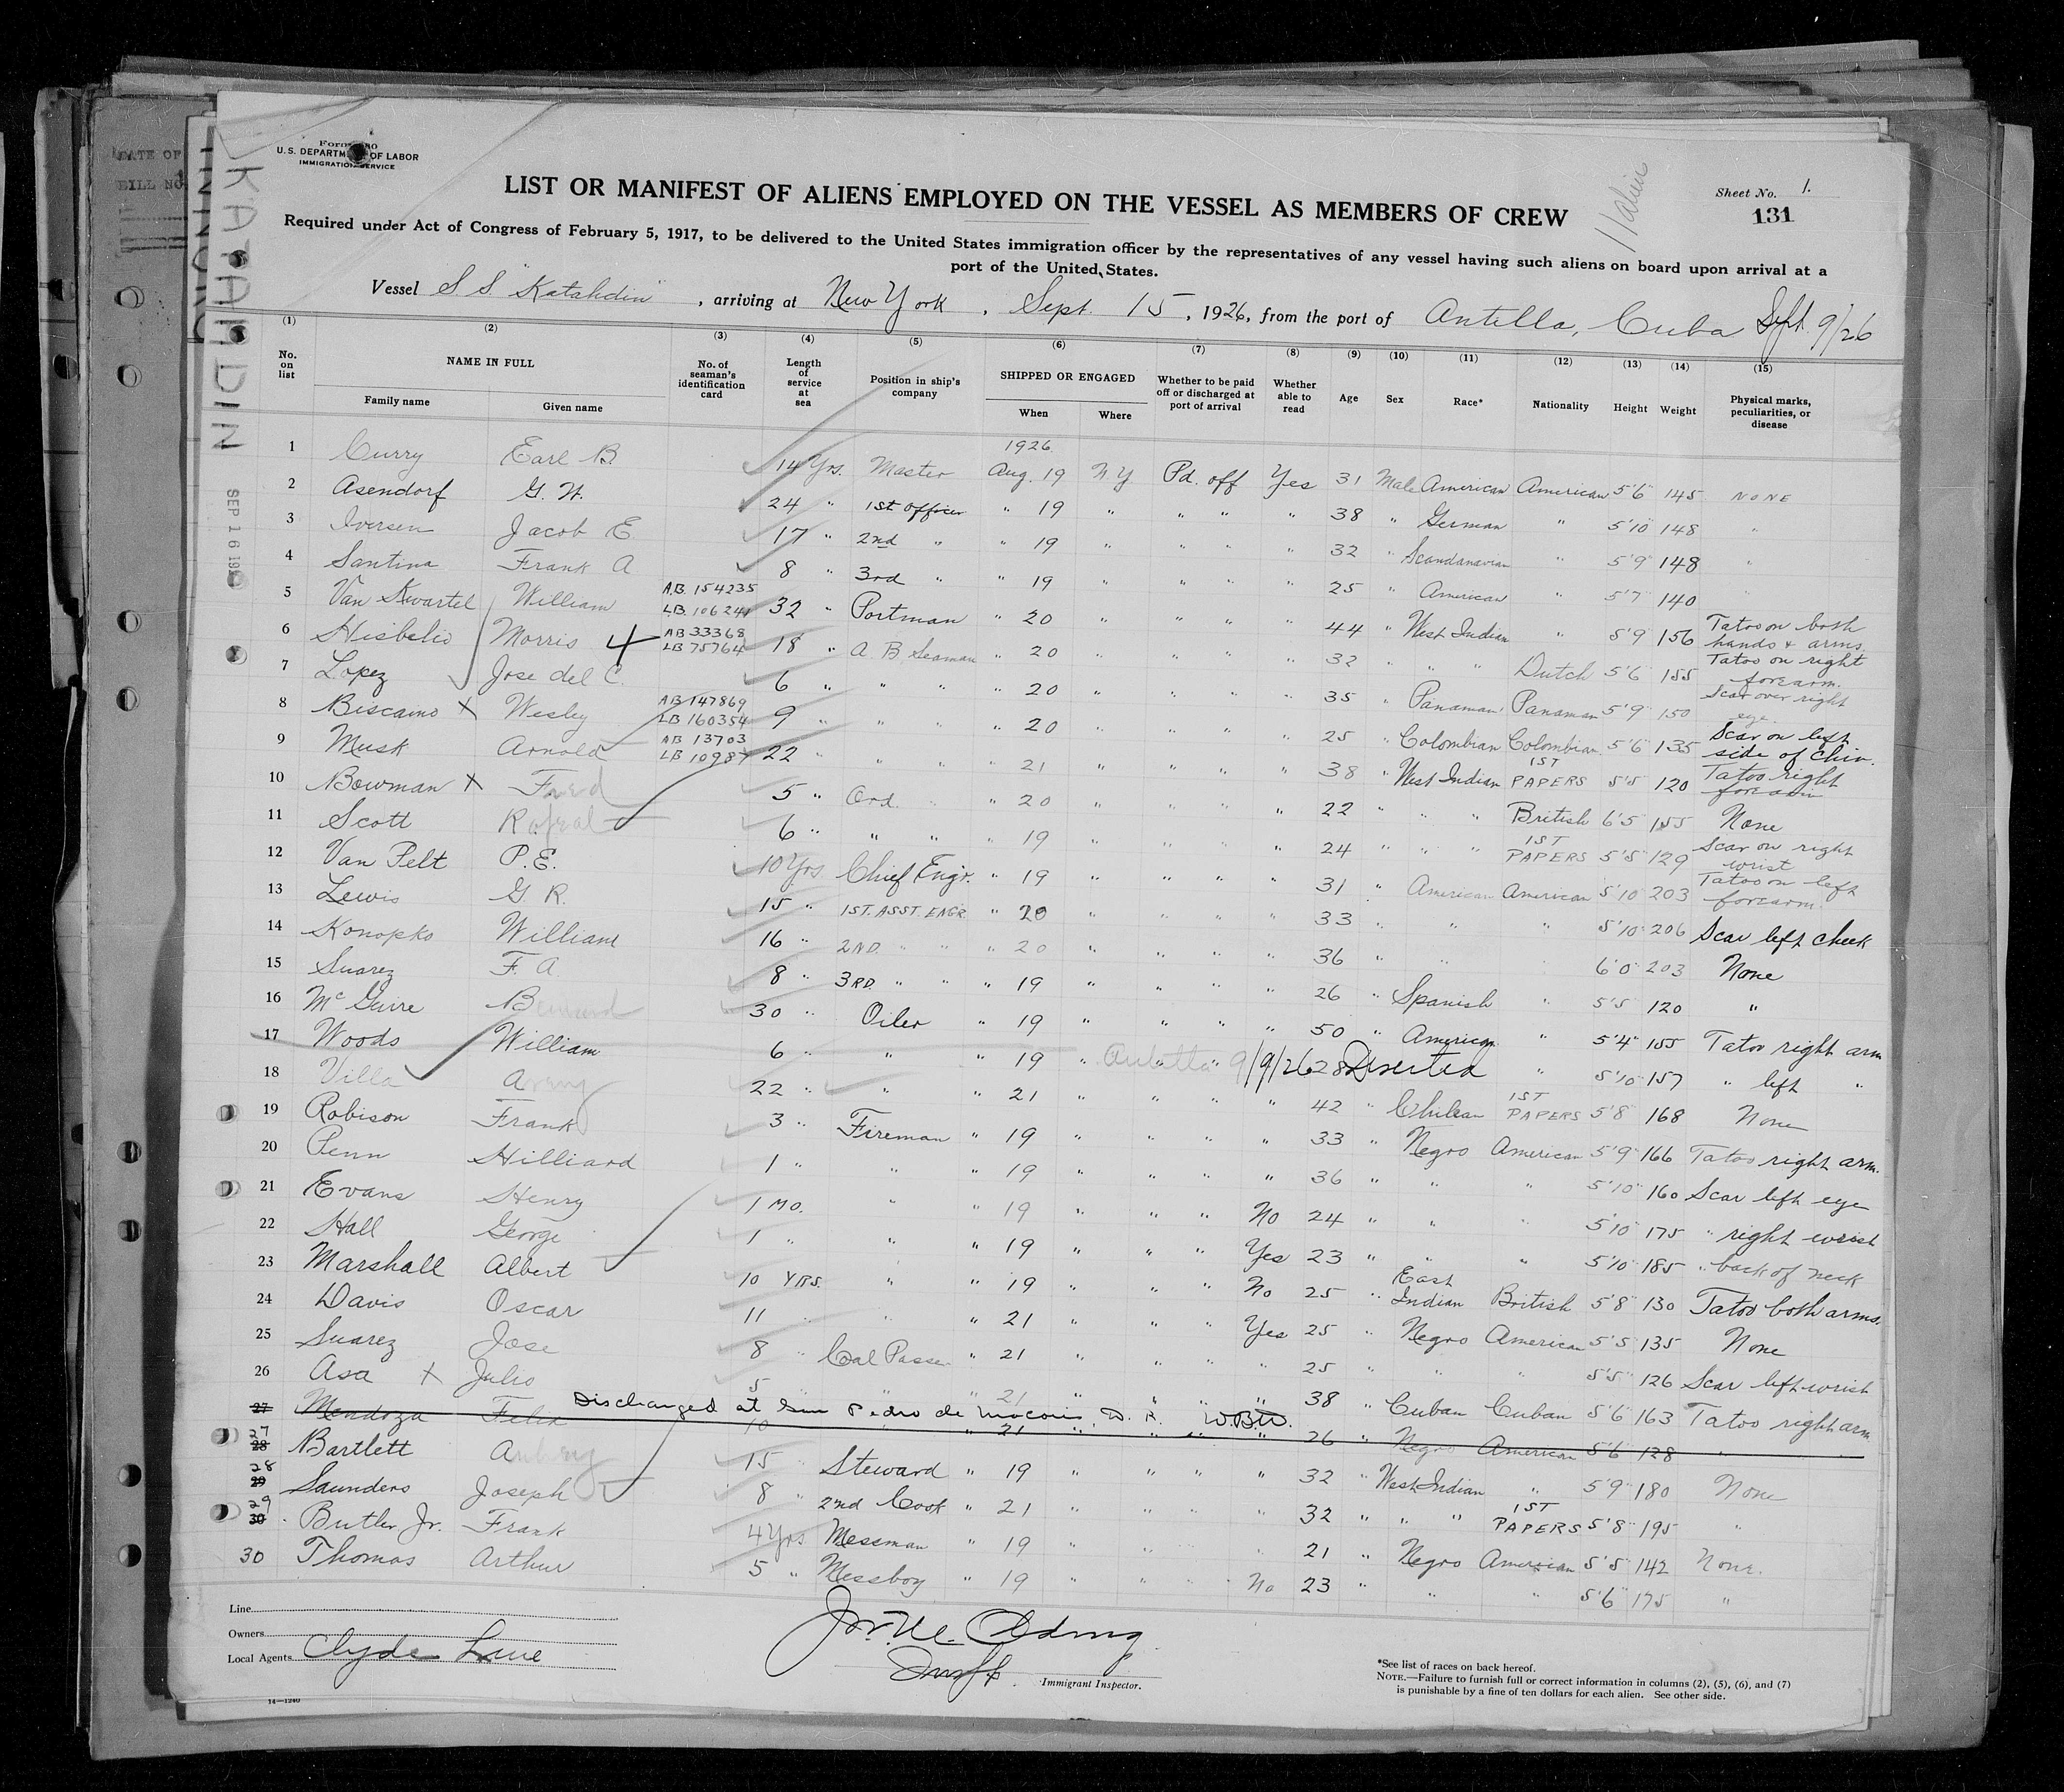 DATE OF
BILL NO.
KATAHDIN
SEP 16 192
U.S. DEPARTMENT OF LABOR
IMMIGRATION SERVICE
11 alien
Sheet No. 1.
131
LIST OR MANIFEST OF ALIENS EMPLOYED ON THE VESSEL AS MEMBERS OF CREW
Required under Act of Congress of February 5, 1917, to be delivered to the United States immigration officer by the representatives of any vessel having such aliens on board upon arrival at a
port of the United States.
Vessel S S. "Katahdin", arriving at New York, Sept. 15, 1926, from the port of Antilla, Cuba Sept. 9/26
(1) (2) (3) (4) (5) (6) (7) (8) (9) (10) (11) (12) (13) (14) (15)
No. on list NAME IN FULL No. of seaman's identification card Length of service at sea Position in ship's company SHIPPED OR ENGAGED Whether to be paid off or discharged at port of arrival Whether able to read Age Sex Race* Nationality Height Weight Physical marks, peculiarities, or disease
Family name Given name When Where
1926
1 Curry Earl B. 14 Yrs. Master Aug. 19 N.Y Pd. off Yes 31 Male American American 5'6" 145 NONE
2 Asendorf G. W. 24 " 1st officer " 19 " " " " 38 " German " 5'10" 148 "
3 Iversen Jacob E 17 " 2nd " " 19 " " " " 32 " Scandanavian " 5'9" 148 "
4 Santina Frank A 8 " 3rd " " 19 " " " " 25 " American " 5'7" 140 "
5 Van Kwartel William AB. 154235 LB. 106241 32 " Portman " 20 " " " " 44 " West Indian " 5'9 156 Tatoo on both hands & arms.
6 Hisbelio Morris AB 33368 LB 75764 18 " A B Seaman " 20 " " " " 32 " " " Dutch 5'6" 155 Tatoo on right forearm.
7 Lopez Jose del C. 6 " " " " 20 " " " " 35 " Panaman Panaman 5'9" 150 Scar over right eye.
8 Biscaino X Wesley AB 147869 LB 160354 9 " " " " 20 " " " " 25 " Colombian Colombian 5'6" 135 Scar on left side of chin.
9 Musk Arnold AB 13703 LB 10987 22 " " " " 21 " " " " 38 " West Indian 1ST PAPERS 5'5" 120 Tatoo right forearm
10 Bowman X Fred 5 " Ord. " " 20 " " " " 22 " " " British 6'5 155 None
11 Scott Rafeal 6 " " " " 19 " " " " 24 " " " 1ST PAPERS 5'5" 129 Scar on right wrist
12 Van Pelt P.E. 10 Yrs Chief Engr. " 19 " " " " 31 " American American 5'10 203 Tatoo on left forearm.
13 Lewis G R. 15 " 1ST. ASST. ENGR " 20 " " " " 33 " " " 5'10" 206 Scar left cheek
14 Konopko William 16 " 2ND. " " " 20 " " " " 36 " " " 6'0" 203 None
15 Suarez F. A. 8 " 3RD. " " " 19 " " " " 26 " Spanish " 5'5" 120 "
16 McGuire Bernard 30 " Oiler " 19 " " " " 50 " American " 5'4" 155 Tatoo right arm
17 Woods William 6 " " " 19 " Antilla 9/9/26 28 Deserted " 5'10" 157 " left "
18 Villa 22 " " " 21 " " " " 42 " Chilean 1ST PAPERS 5'8" 168 None
19 Robison Frank 3 " Fireman " 19 " " " " 33 " Negro American 5'9" 166 Tatoo right arm.
20 Penn Hilliard 1 " " " 19 " " " " 36 " " " 5'10" 160 Scar left eye
21 Evans Henry 1 MO. " " 19 " " " No 24 " " " 5'10" 175 " right wrist
22 Hall George 1 " " " 19 " " " Yes 23 " " " 5'10" 185 " back of neck
23 Marshall Albert 10 YRS. " " 19 " " " No 25 " East Indian British 5'8" 130 Tatoo both arms.
24 Davis Oscar 11 " " " 21 " " " Yes 25 " Negro American 5'5" 135 None
25 Suarez Jose 8 " Coal Passer " 21 " " " " 25 " " " 5'5" 126 Scar left wrist
26 Asa X Julio 5 " " " 21 " " " " 38 " Cuban Cuban 5'6" 163 Tatoo right arm
27 Mendoza Felix Discharged at San Pedro de Macoris, D. R. W.B.W. 10 " 21 " " " " 26 " Negro American 5'6" 128 "
27 28 Bartlett 15 " Steward " 19 " " " " 32 " West Indian " 5'9" 180 None
28 29 Saunders Joseph 8 " 2nd Cook " 21 " " " " 32 " " " 1ST PAPERS 5'8" 195 "
29 30 Butler Jr. Frank 4 Yrs Messman " 19 " " " " 21 " Negro American 5'5" 142 None.
30 Thomas Arthur 5 " Messboy " 19 " " " No 23 " " " 5'6" 175 "
Line
Owners
Local Agents Clyde Line
Immigrant Inspector.
*See list of races on back hereof.
NOTE.—Failure to furnish full or correct information in columns (2), (5), (6), and (7)
is punishable by a fine of ten dollars for each alien. See other side.
14—1240